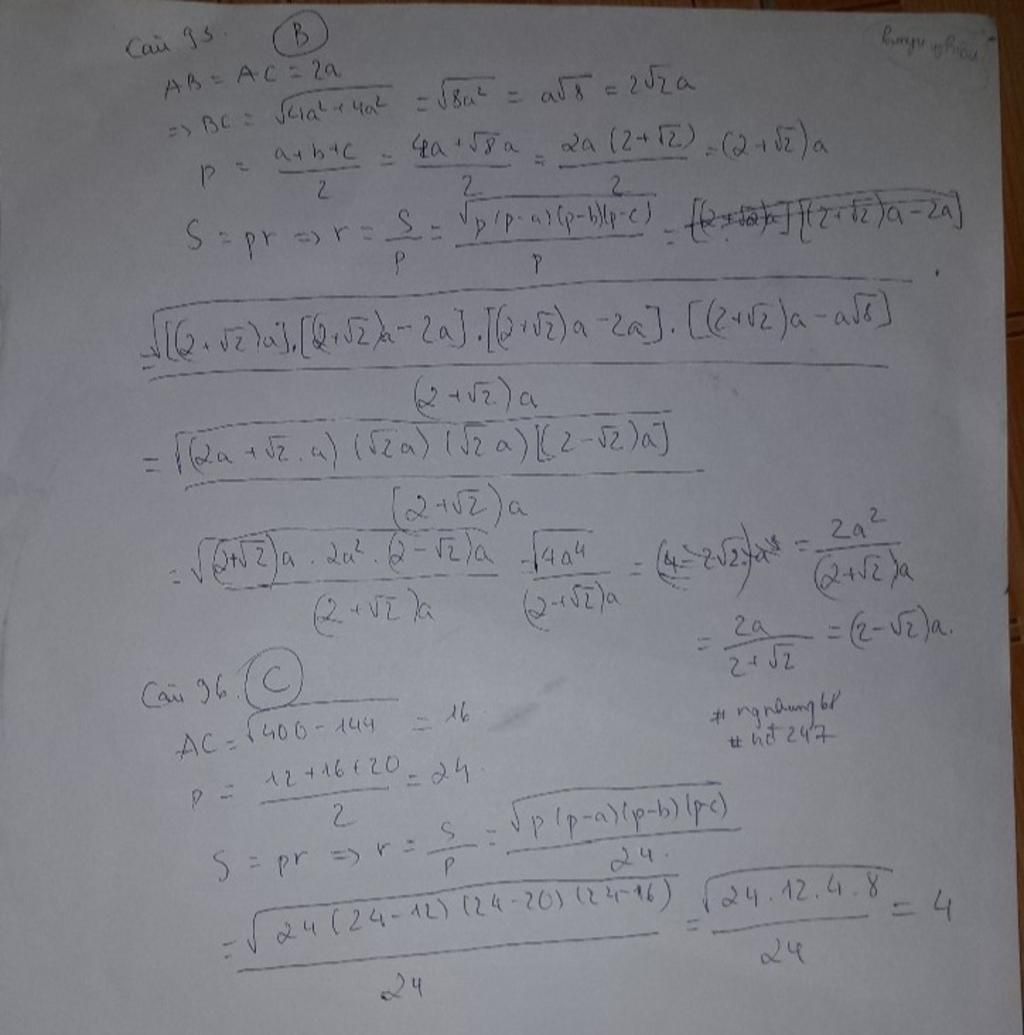 Câu 95. B
AB = AC = 2a
=> BC = √(4a² + 4a²) = √(8a²) = a√8 = 2√2a
p = (a+b+c)/2 = (4a + √8a)/2 = 2a(2+√2)/2 = (2+√2)a
S = pr => r = S/p = √(p(p-a)(p-b)(p-c))/p = [(2+√2)a][(2+√2)a - 2a]
= √([(2+√2)a].[(2+√2)a - 2a].[(2+√2)a - 2a].[(2+√2)a - a√8])/((2+√2)a)
= √((2a + √2.a)(√2a)(√2a)[(2-√2)a])/((2+√2)a)
= √((2+√2)a . 2a² . (2-√2)a)/((2+√2)a) = √(4a⁴)/((2+√2)a) = = 2a²/((2+√2)a)
= 2a/(2+√2) = (2-√2)a.
Câu 96. C
AC = √(400 - 144) = 16
P = (12+16+20)/2 = 24
# hd247
S = pr => r = S/p = √(p(p-a)(p-b)(p-c))/24.
= √(24(24-12)(24-20)(24-16))/24 = √(24.12.4.8)/24 = 4